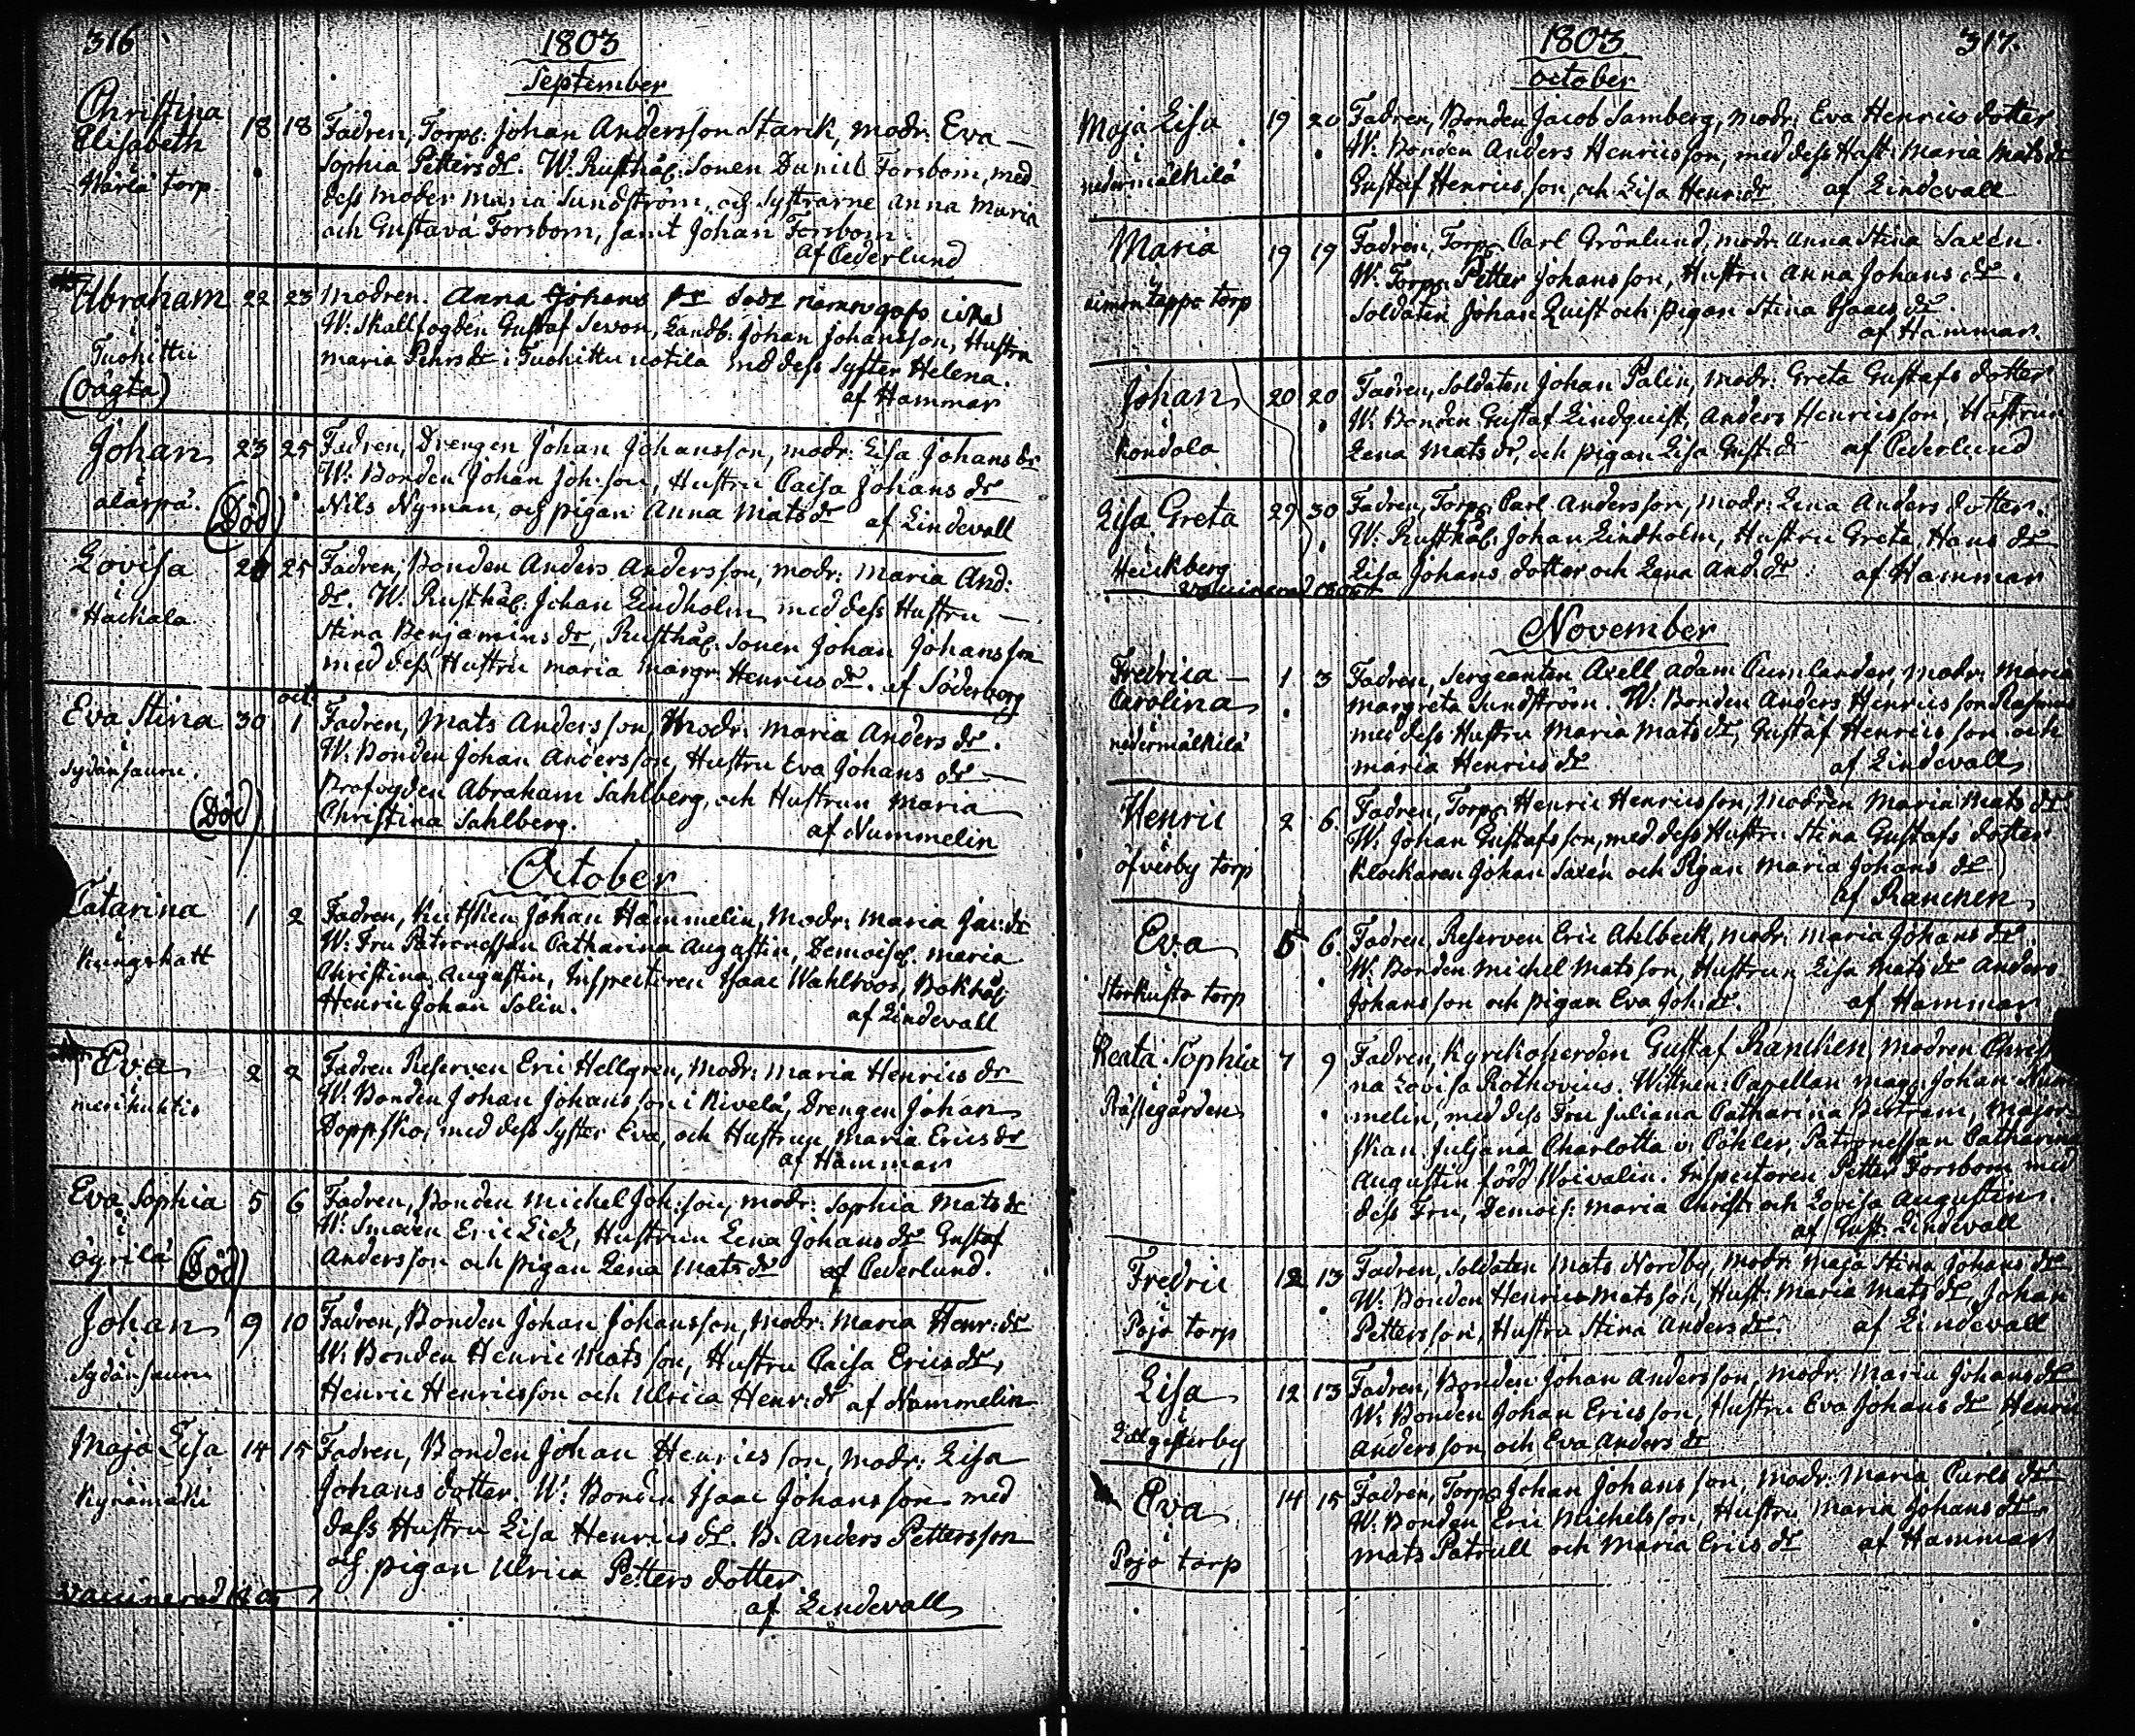 316
1803
September
Christina
Elisabeth
i
Wäriä torp.
18 18
Fadren, Torp: Johan Andersson Starck, modr: Eva
Sophia Petters dr. W. Rusthål: Sonen Daniel Forsbom, med
dess moder Maria Sundström, och Systrarne Anna Maria
och Gustava Forsbom, samt Johan Forsbom.
af Cederlund
Abraham
i
Tuohittu
(oägta)
22 23
Modren. Anna Johans dr
W: Skallfogden Gustaf Sevon, Landb: Johan Johansson, Hustru
Maria Pehrs dr i Tuohittu uotila med dess Syster Helena.
af Hammar
Johan
i
alaspä.
(Död)
23 25
Fadren, Drengen Johan Johansson, modr: Lisa Johans dr
W: Bonden Johan Joh:son, Hustru Caisa Johans dr
Nils Nyman, och pigan Anna Mats dr af Lindevall
Lovisa
i
Haikala
24 25
Fadren, Bonden Anders Andersson, modr: Maria And:
dr. W. Rusthål: Johan Lindholm med dess Hustru
Stina Benjamins dr, Rusthål. Sonen Johan Johansson
med dess Hustru Maria Margr. Henrics dr. af Söderborg
Eva Stina
i
Sydänsauru.
(Död)
30 oct: 1
Fadren, Mats Andersson, Modr: Maria Anders dr.
W: Bonden Johan Andersson, Hustru Eva Johans dr
Profogden Abraham Sahlberg, och Hustrun Maria
Christina Sahlberg.
af Nummelin
October
Catarina
i
Kungskatt
1 2
Fadren, Kutsken Johan Hammelin, Modr: Maria Jac: dr
W: Fru Patronessan Catharina Augustin, Demoisel. Maria
Christina Augustin, Inspectoren Isaac Wahlroos, Bokhål:
Henric Johan Solin.
af Lindevall
Eva
i
merikuhtis
2 2
Fadren Reserven Eric Hellgren, Modr: Maria Henrics dr
W. Bonden Johan Johansson i Kivelä, Drengen Johan
Doppsko, med dess Syster Eva, och Hustrun Maria Erics dr
af Hammar
Eva Sophia
i
ögrilä
(Död)
5 6
Fadren, Bonden Michel Joh:son, modr: Sophia Mats dr
W. Smeden Eric Lick, Hustrun Lena Johans dr Gustaf
Andersson och pigan Lena Mats dr af Cederlund.
Johan
i
Sydänsauru
9 10
Fadren, Bonden Johan Johansson, Modr: Maria Henr: dr
W: Bonden Henric Matsson, Hustru Caisa Erics dr,
Henric Henricsson och Ulrica Henr: dr af Nummelin
Maja Lisa
i
Kyrämäki
Vaccinerad 1805
14 15
Fadren, Bonden Johan Henricsson, modr: Lisa
Johans dotter. W: Bonden Isaac Johansson med
dess Hustru Lisa Henrics dr. B. Anders Pettersson
och pigan Ulrica Petters dotter.
af Lindevall
1803
317.
October
Maja Lisa
i
nedermälkilä
19 20
Fadren, Bonden Jacob Samberg, modr: Eva Henrics dotter
W: Bonden Anders Henricsson, med dess Hust: Maria Mats dr
Gustaf Henricsson, och Lisa Henr: dr af Lindevall
Maria
i
torp
19 19
Fadren, Torp: Carl Grönlund, modr: Anna Stina Saxén.
W. Torp: Petter Johansson, Hustru Anna Johans dr.
Soldaten Johan Quist och pigan Stina Isaacs dr.
af Hammar.
Johan
i
Kondola
20 20
Fadren, Soldaten Johan Palin, modr: Greta Gustafs dotter
W. Bonden Gustaf Lindquist, Anders Henricsson, Hustrun
Lena Mats dr, och pigan Lisa Gust: dr af Cederlund
Lisa Greta
i
Heickberg
Vaccinerad 1805
29 30
Fadren, Torp: Carl Andersson, modr: Lena Anders dotter.
W: Rusthål: Johan Lindholm, Hustru Greta Hans dr
Lisa Johans dotter och Lena And: dr af Hammar
November
Fredrica
Carolina
i
nedermälkilä
1 3
Fadren, Sergeanten Axell Adam Cumlander, modr: Maria
Margreta Sundström. W: Bonden Anders Henricsson Rasmus
med dess Hustru Maria Mats dr, Gustaf Henricsson och
Maria Henrics dr
af Lindevall
Henric
i
öfverby torp
2 6.
Fadren, Torp: Henric Henricsson, Modren Maria Mats dr.
W. Johan Gustafsson, med dess Hustru Stina Gustafs dotter
Klockaren Johan Saxén och Pigan Maria Johans dr
af Rancken
Eva
i
Storkusto torp
5 6.
Fadren, Reserven Eric Ahlbeck, modr: Maria Johans dr
W: Bonden Michel Matsson, Hustrun Lisa Mats dr Anders
Johansson och pigan Eva Joh: dr. af Hammar
Reata Sophia
i
Prästegården
7 9
Fadren, Kyrckoherden Gustaf Rancken, modren Christi
na Lovisa Rothovius. Wittnen: Capellan mag: Johan Num
melin, med dess Fru Juliana Catharina Bertram, Major
skan Juliana Charlotta v. Cöhler, Patronessan Catharina
Augustin född Woivalin. Inspectoren Petter Forsbom med
dess Fru, Demois: Maria Christ: och Lovisa Augustin.
af Gust: Lindevall
Fredric
i
Pojo torp
12 13
Fadren, Soldaten Mats Nordby, modr: Maja Stina Johans dr
W: Bonden Henric Matsson, Hust: Maria Mats dr, Johan
Pettersson, Hustru Stina Anders dr. af Lindevall
Lisa
i
Lillgesterby
12 13
Fadren, Bonden Johan Andersson, modr: Maria Johans dr
W: Bonden Johan Ericsson, Hustru Eva Johans dr Henric
Andersson och Eva Anders dr
Eva
i
Pojo torp
14 15
Fadren, Torp: Johan Johansson, modr: Maria Carls dr
W: Bonden Eric Michelsson, Hustru Maria Johans dr
Mats Patrull och Maria Erics dr af Hammar